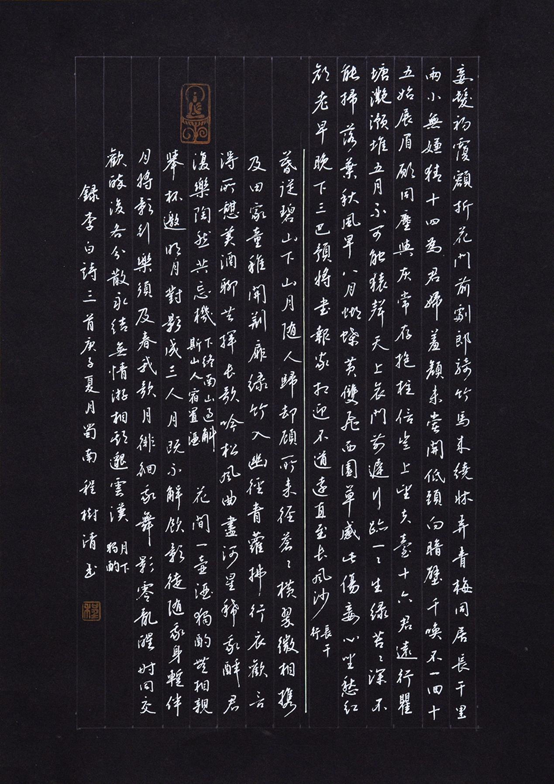 妾髮初覆額折花門前劇郎騎竹馬來繞牀弄青梅同居長干里
兩小無嫌猜十四為君婦羞顏未嘗開低頭向暗壁千喚不一回十
五始展眉願同塵與灰常存抱柱信豈上望夫臺十六君遠行瞿
塘灔澦堆五月不可觸猿聲天上哀門前遲行跡一々生綠苔々深不
能掃落葉秋風早八月蝴蝶黃雙飛西園草感此傷妾心坐愁紅
顏老早晚下三巴預將書報家相迎不道遠直至長風沙 長干行
暮從碧山下山月隨人歸却顧所來徑蒼々橫翠微相攜
及田家童稚開荊扉綠竹入幽徑青蘿拂行衣歡言
得所憩美酒聊共揮長歌吟松風曲盡河星稀我醉君
復樂陶然共忘機 下終南山過斛斯山人宿置酒 花間一壺酒獨酌無相親
舉杯邀明月對影成三人月既不解飲影徒隨我身暫伴
月將影行樂須及春我歌月徘徊我舞影零亂醒時同交
歡醉後各分散永結無情游相期邈雲漢 月下獨酌
錄李白詩三首庚子夏月蜀南程樹清书